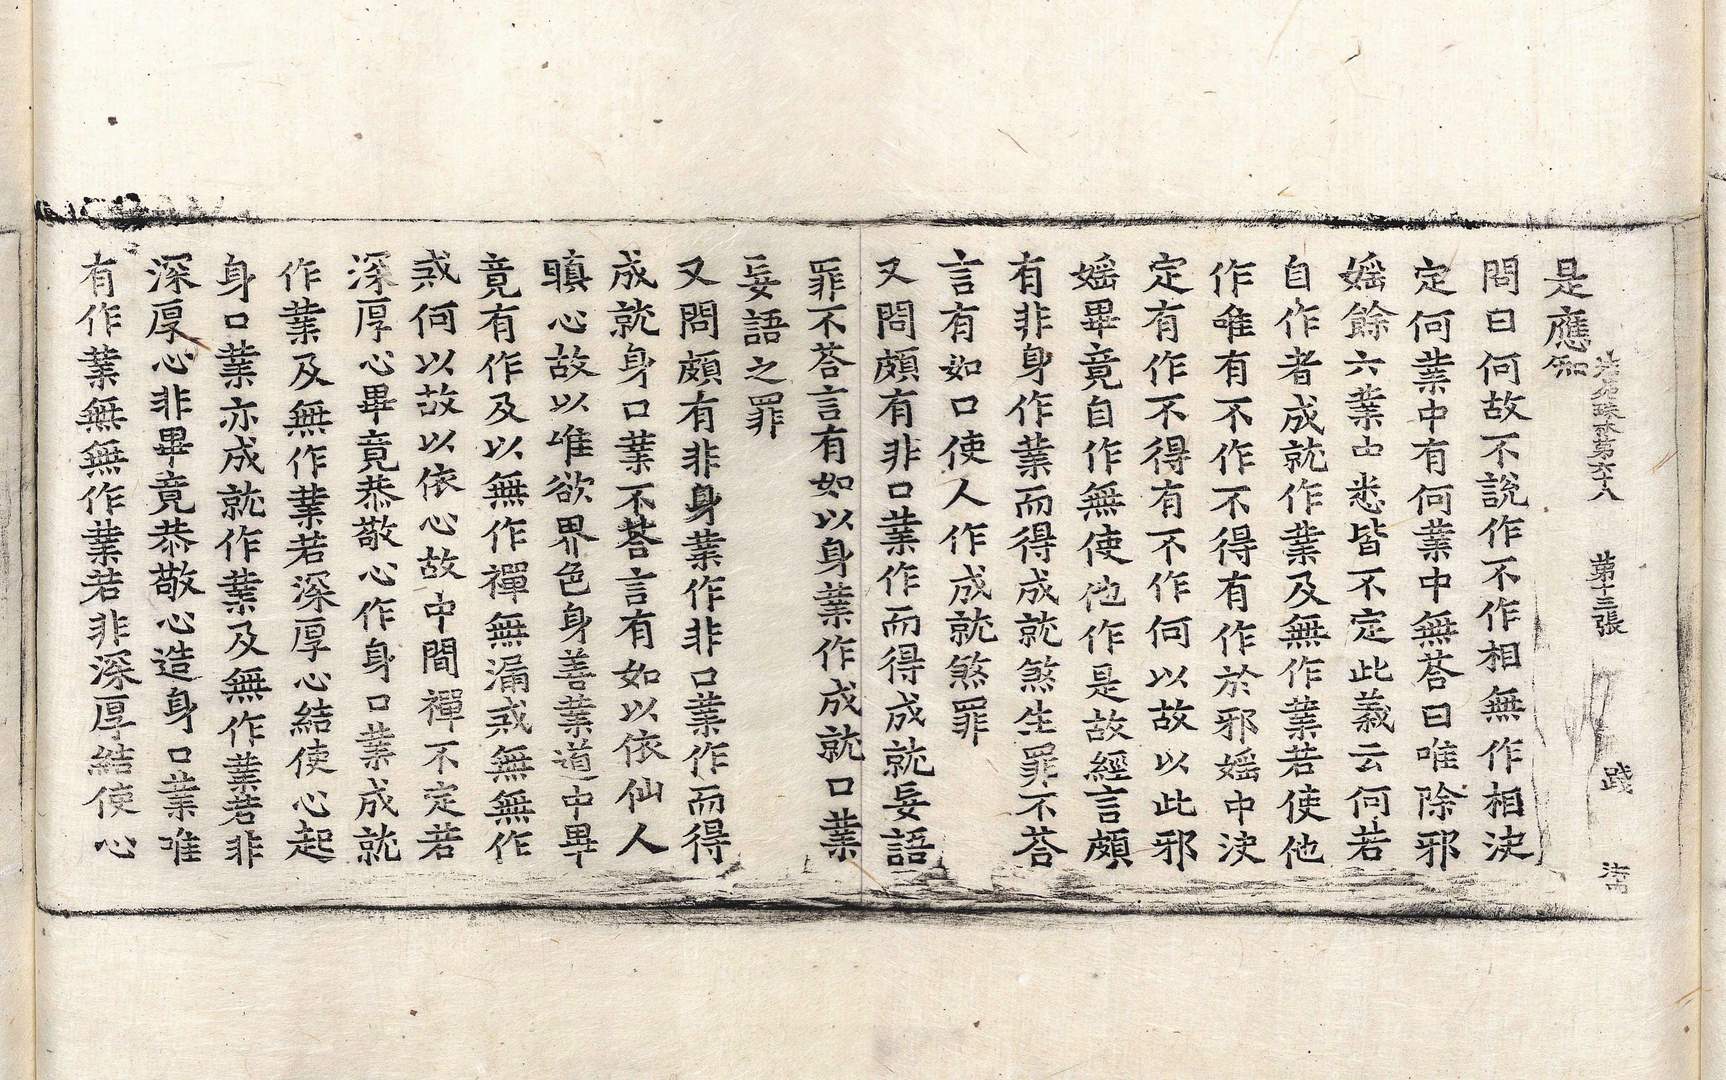 法苑珠林第六十八　第十三張　踐
是應知
問曰何故不說作不作相無作相決
定何業中有何業中無荅曰唯除邪
婬餘六業中悉皆不定此義云何若
自作者成就作業及無作業若使他
作唯有不作不得有作於邪婬中決
定有作不得有不作何以故以此邪
婬畢竟自作無使他作是故經言頗
有非身作業而得成就煞生罪不荅
言有如口使人作成就煞罪
又問頗有非口業作而得成就妄語
罪不荅言有如以身業作成就口業
妄語之罪
又問頗有非身業作非口業作而得
成就身口業不荅言有如以依仙人
瞋心故以唯欲界色身善業道中畢
竟有作及以無作禪無漏戒無無作
戒何以故以依心故中間禪不定若
深厚心畢竟恭敬心作身口業成就
作業及無作業若深厚心結使心起
身口業亦成就作業及無作業若非
深厚心非畢竟恭敬心造身口業唯
有作業無無作業若非深厚結使心